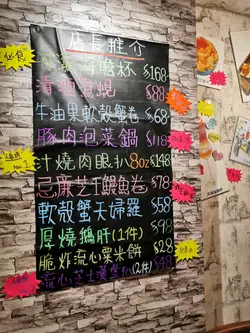 店長推介
海膽杯 $168
清酒煮蜆 $88
牛油果軟殼蟹卷 $68
豚肉泡菜鍋 $118
汁燒肉眼扒8oz $148
忌廉芝士鰻魚卷 $78
軟殼蟹天婦羅 $58
厚燒鵝肝(1件) $98
脆炸流心粟米餅 $28
流心芝士漢堡扒(2件) $48
必食